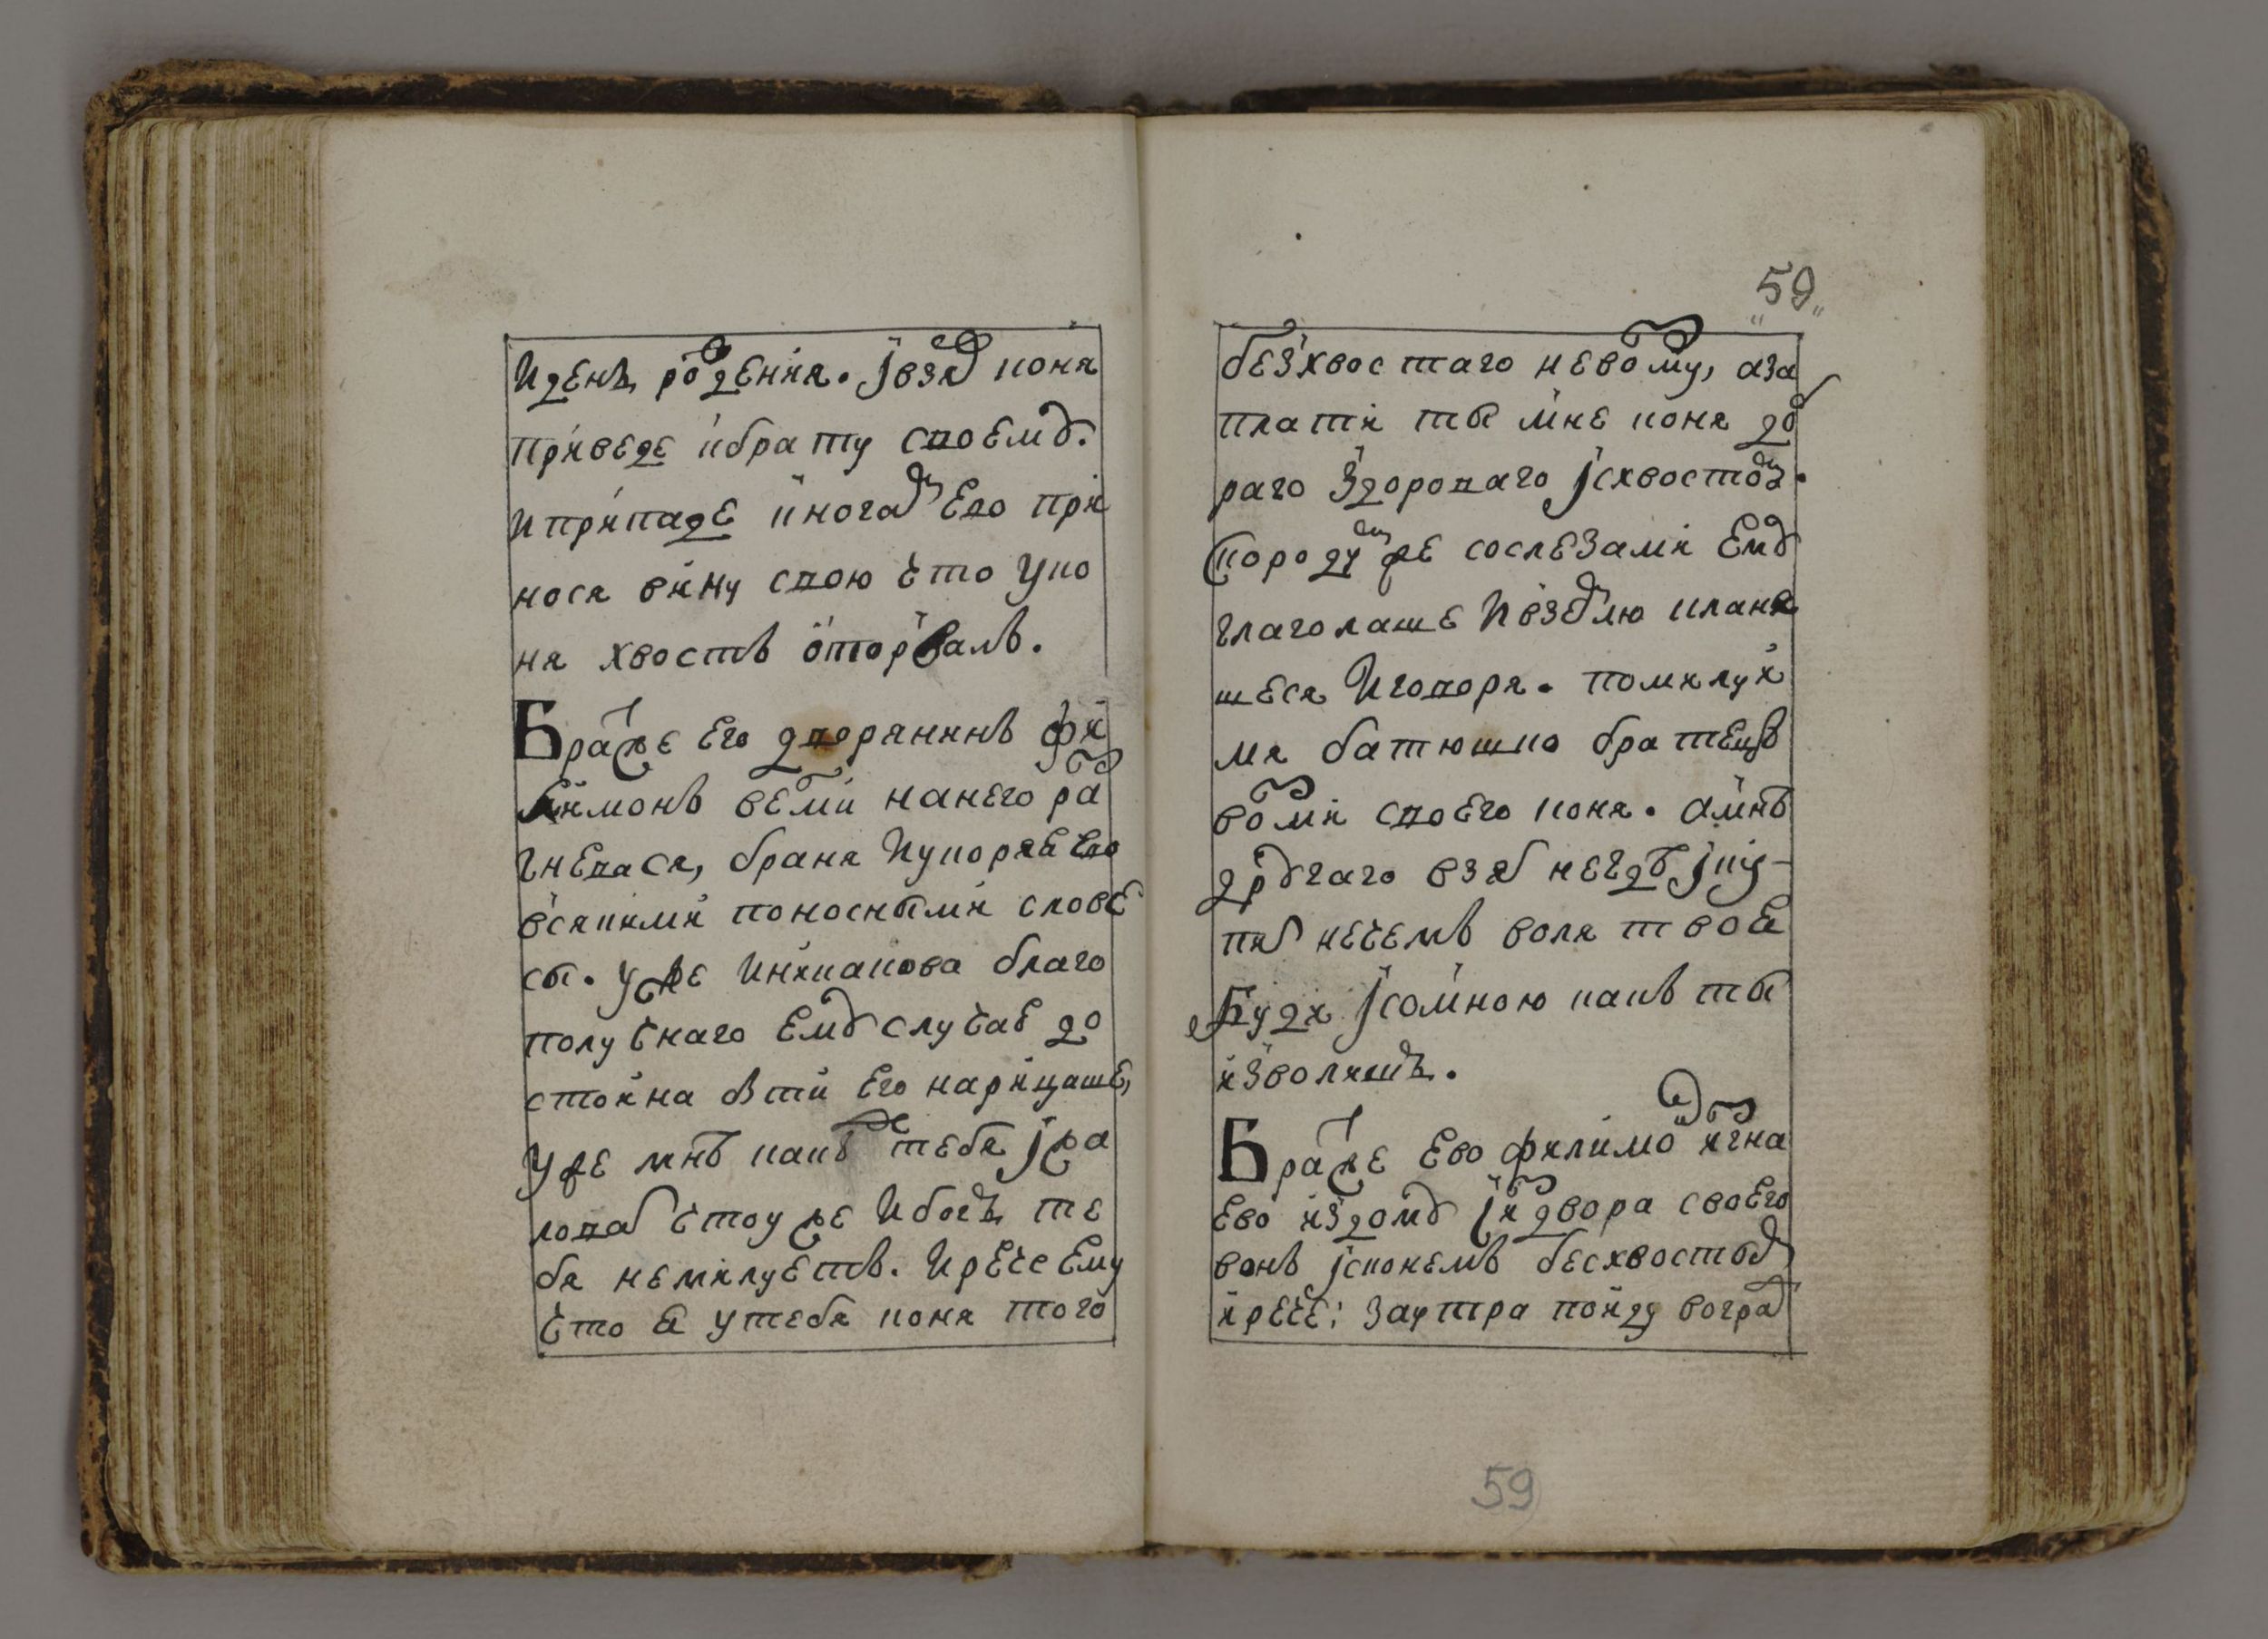 И день рождения. Ивзял коня
приведе кбрату своему.
И припаде кногамъ его при
нося вину свою что уко
ня хвостъ оторвалъ.
Братже его дворянинъ фи
лимонъ велми нанего раз
гневася, браня Иукоряя его
всякими поносными слове
сы. уже Иникакова благо
получнаго ему случая до
стойна быти его нарицаше,
уже мнѣ какъ тебя Iжа
ловать чтоуже Ибогъ те
бя немилуетъ. Ирече ему
что я утебя коня того
59
безхвостаго невозму, аза
плати ты мне коня доб
раго Здороваго Iсхвостомъ.
Скородумже сослезами ему
глаголаше Квземлю кланя
шеся Иговоря. помилуй
мя батюшко братецъ
возми своего коня. амнѣ
другаго взять негдѣ Iку
пить нечемъ воля твоя
Буди Iсомною какъ ты
изволишь.
Братже Ево филимон изгна
Ево издому Iиздвора своего
вонъ Iсконемъ бесхвостымъ
ирече: Заутра пойду воград
59